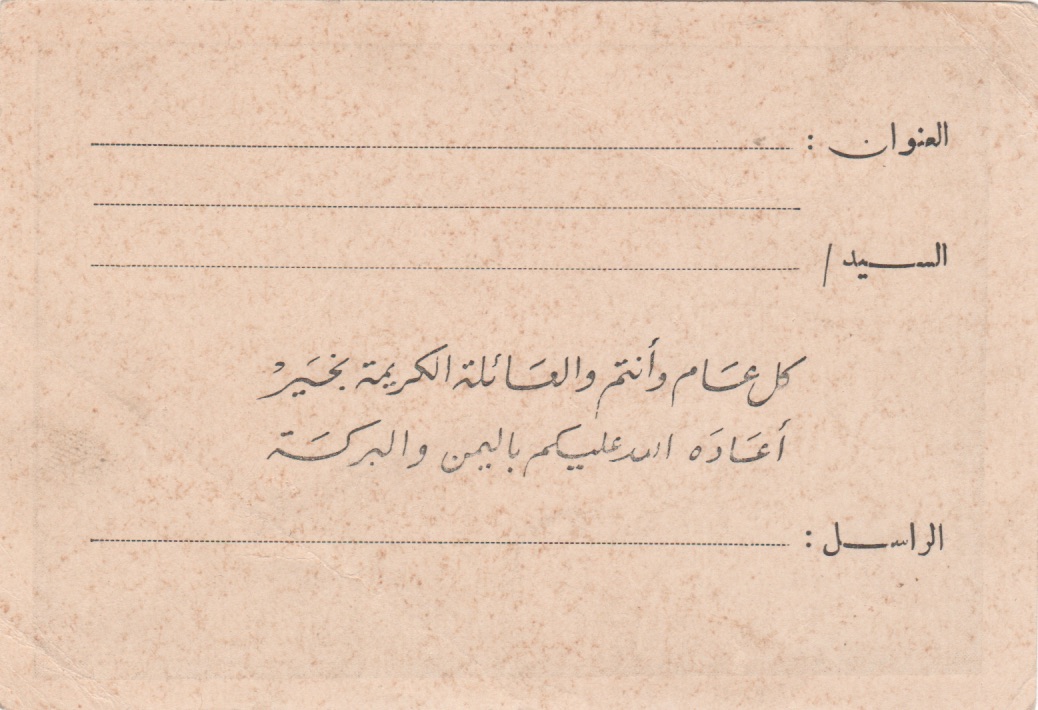 العنوان :
السيد /
كل عام وأنتم والعائلة الكريمة بخير
أعاده الله عليكم باليمن والبركة
الراسل :